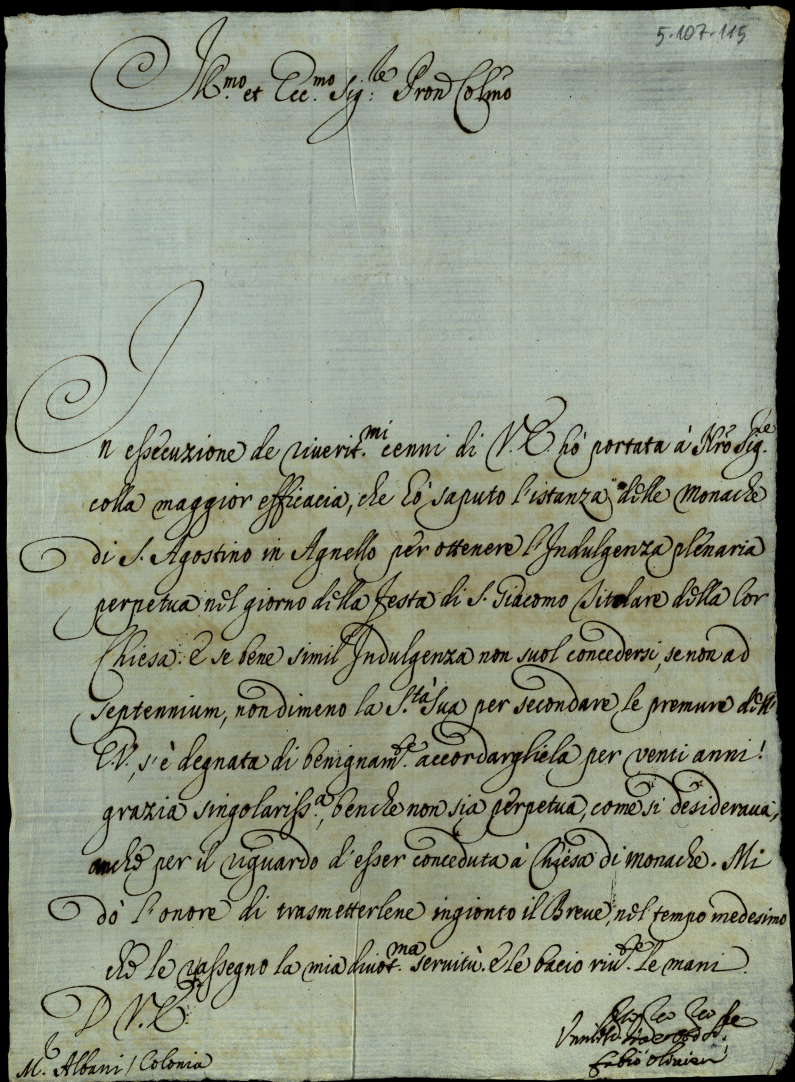 5-107-115
Ill.mo et Ecc.mo Sig.re Pron Colmo
In essecuzione de riverit.mi cenni di V.E. hò portata à Nrõ Sig.re
colla maggior efficacia, che hò saputo l'istanza delle Monache
di S. Agostino in Agnello per ottenere l'Indulgenza plenaria
perpetua nel giorno della Festa di S. Giacomo Titolare della lor
Chiesa: e se bene simil Indulgenza non suol concedersi, se non ad
septennium, nondimeno la S.tà Sua per secondare le premure dell'
E.V., s'è degnata di benignam.te accordargliela per venti anni:
grazia singolariss.a, benche non sia perpetua, come si desiderava,
anche per il riguardo d'esser conceduta à Chiesa di Monache. Mi
dò l'onore di trasmetterlene ingionto il Breve, nel tempo medesimo
che le rassegno la mia divot.ma servitù. e le bacio riv.te le mani
D V.E.
Fabio Olivieri
M.r Albani / Colonia